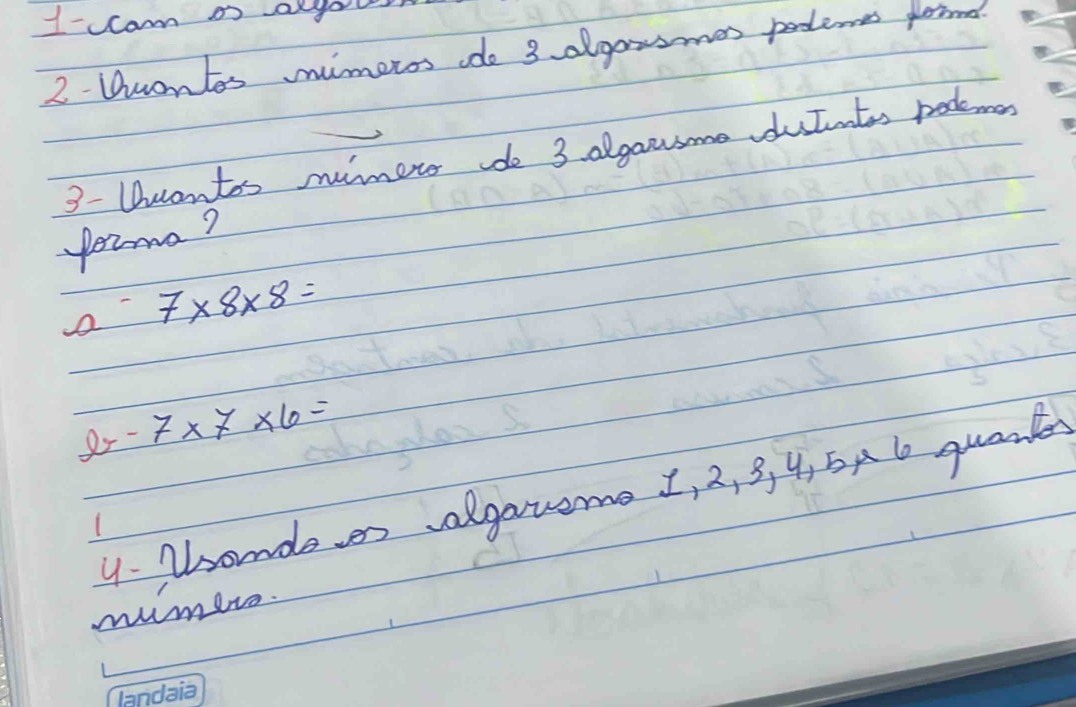 1- com os
2- Quantos números de 3 algarismos podemos forma.
3- Quantos número de 3 algarismo distintos podemos
forma?
a- 7x8x8=
b- 7x7x6=
4- Usando os algarismo 1, 2, 3, 4, 5 e 6 quantos
número.
landaia